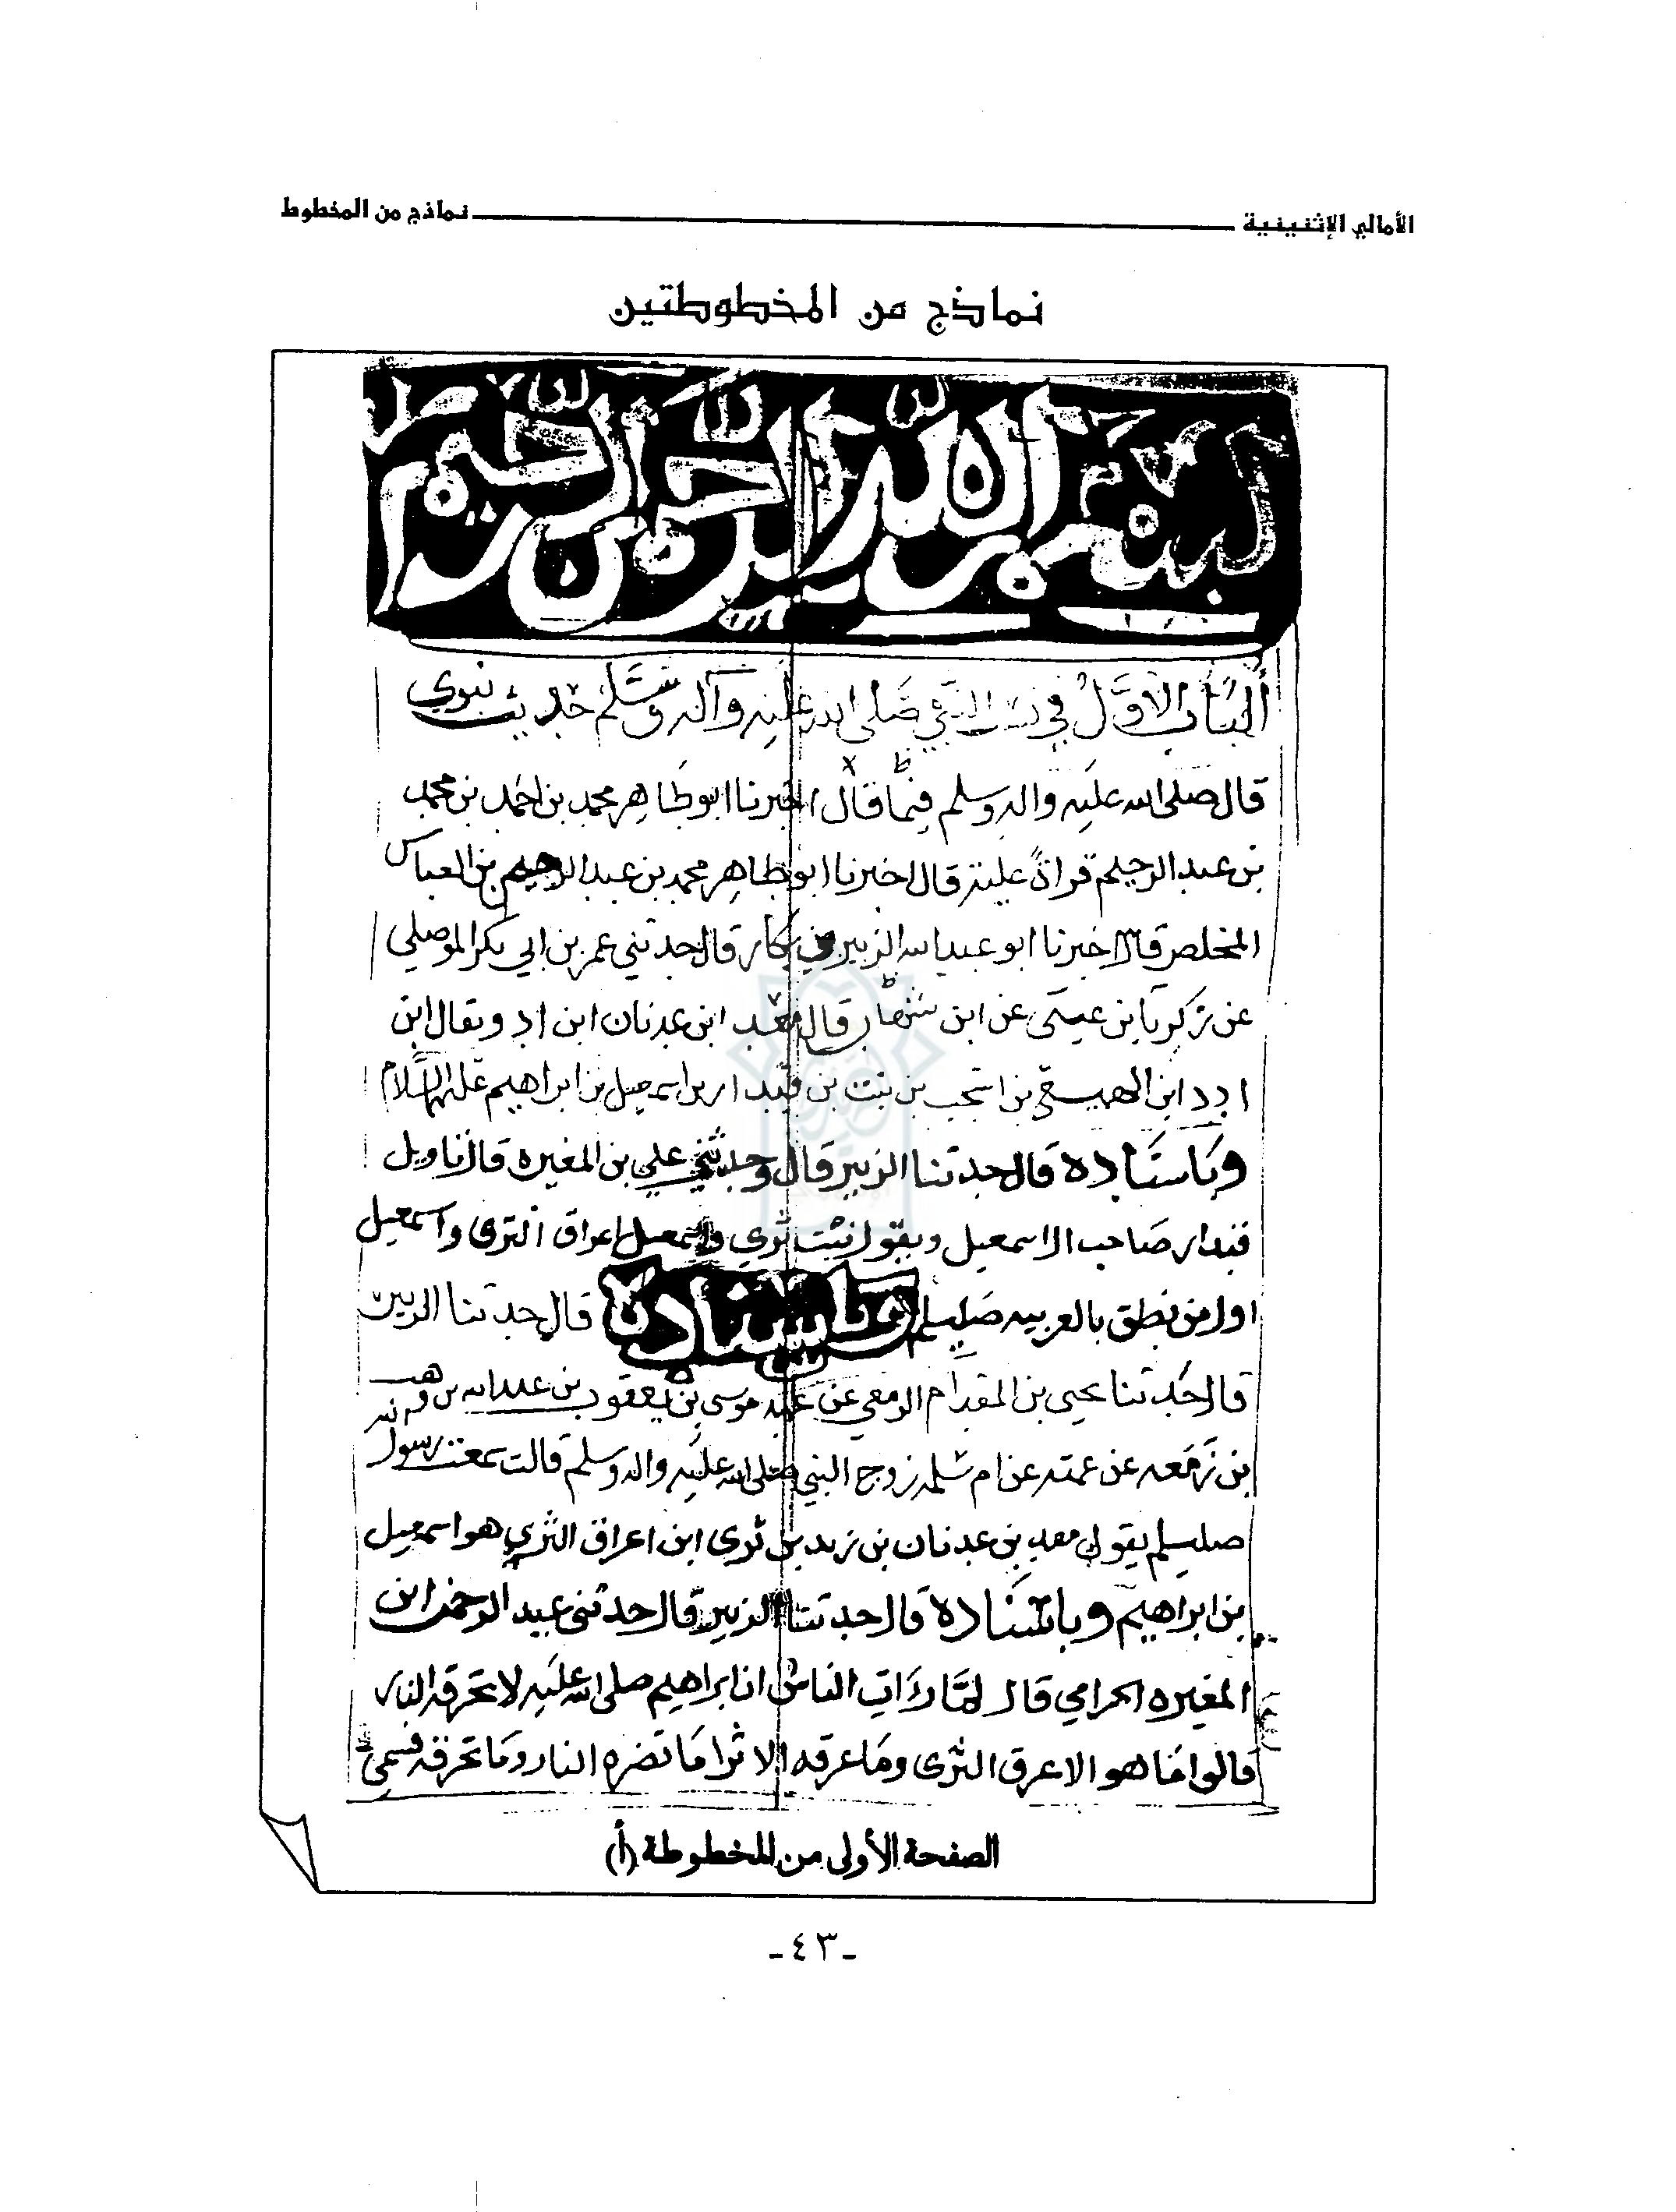 الأمالي الإثنينية
نماذج من المخطوط
نماذج من المخطوطتين
بسم الله الرحمن الرحيم
الباب الاول في نسب النبي صلى الله عليه وآله وسلم حديث نبوي
قال صلى الله عليه واله وسلم فيما قال اخبرنا ابو طاهر محمد بن احمد بن محمد
بن عبد الرحيم قراة عليه قال اخبرنا ابو طاهر محمد بن عبد الرحيم بن العباس
المخلص قال اخبرنا ابو عبد الله الزبير بن بكار قال حدثني عمر بن ابي بكر الموصلي
عن زكريا بن عيسى عن ابن شهاب قال معد ابن عدنان ابن اد ويقال ابن
ادد ابن الهميسع بن اشجب بن نبت بن قيدار بن اسمعيل بن ابراهيم عليهم السلام
وباسناده قال حدثنا الزبير قال وحدثني علي بن المغيره قال تاويل
قيدار صاحب الاسمعيل ويقول نبت ثرى واسمعيل اعراق الثرى واسمعيل
اول من نطق بالعربيه صلى وباسناده قال حدثنا الزبير
قال حدثنا يحيى بن المقدام الزمعي عن عمه موسى بن يعقوب بن عبد الله بن وهب
بن زمعه عن عمته عن ام سلمه زوج النبي صلى الله عليه واله وسلم قالت سمعت رسول الله
صلى يقول معد بن عدنان بن زيد بن ثرى ابن اعراق الثرى هو اسمعيل
بن ابراهيم وباسناده قال حدثنا الزبير قال حدثني عبد الرحمن ابن
المغيره الحرامي قال لما رءات الناس ان ابراهيم صلى الله عليه لا تحرقه النار
قالوا ما هو الا عرق الثرى وما عرقه الا ثرا ما تضره النار وما تحرقه فسمي
الصفحة الأولى من المخطوطة (أ)
-٤٣-